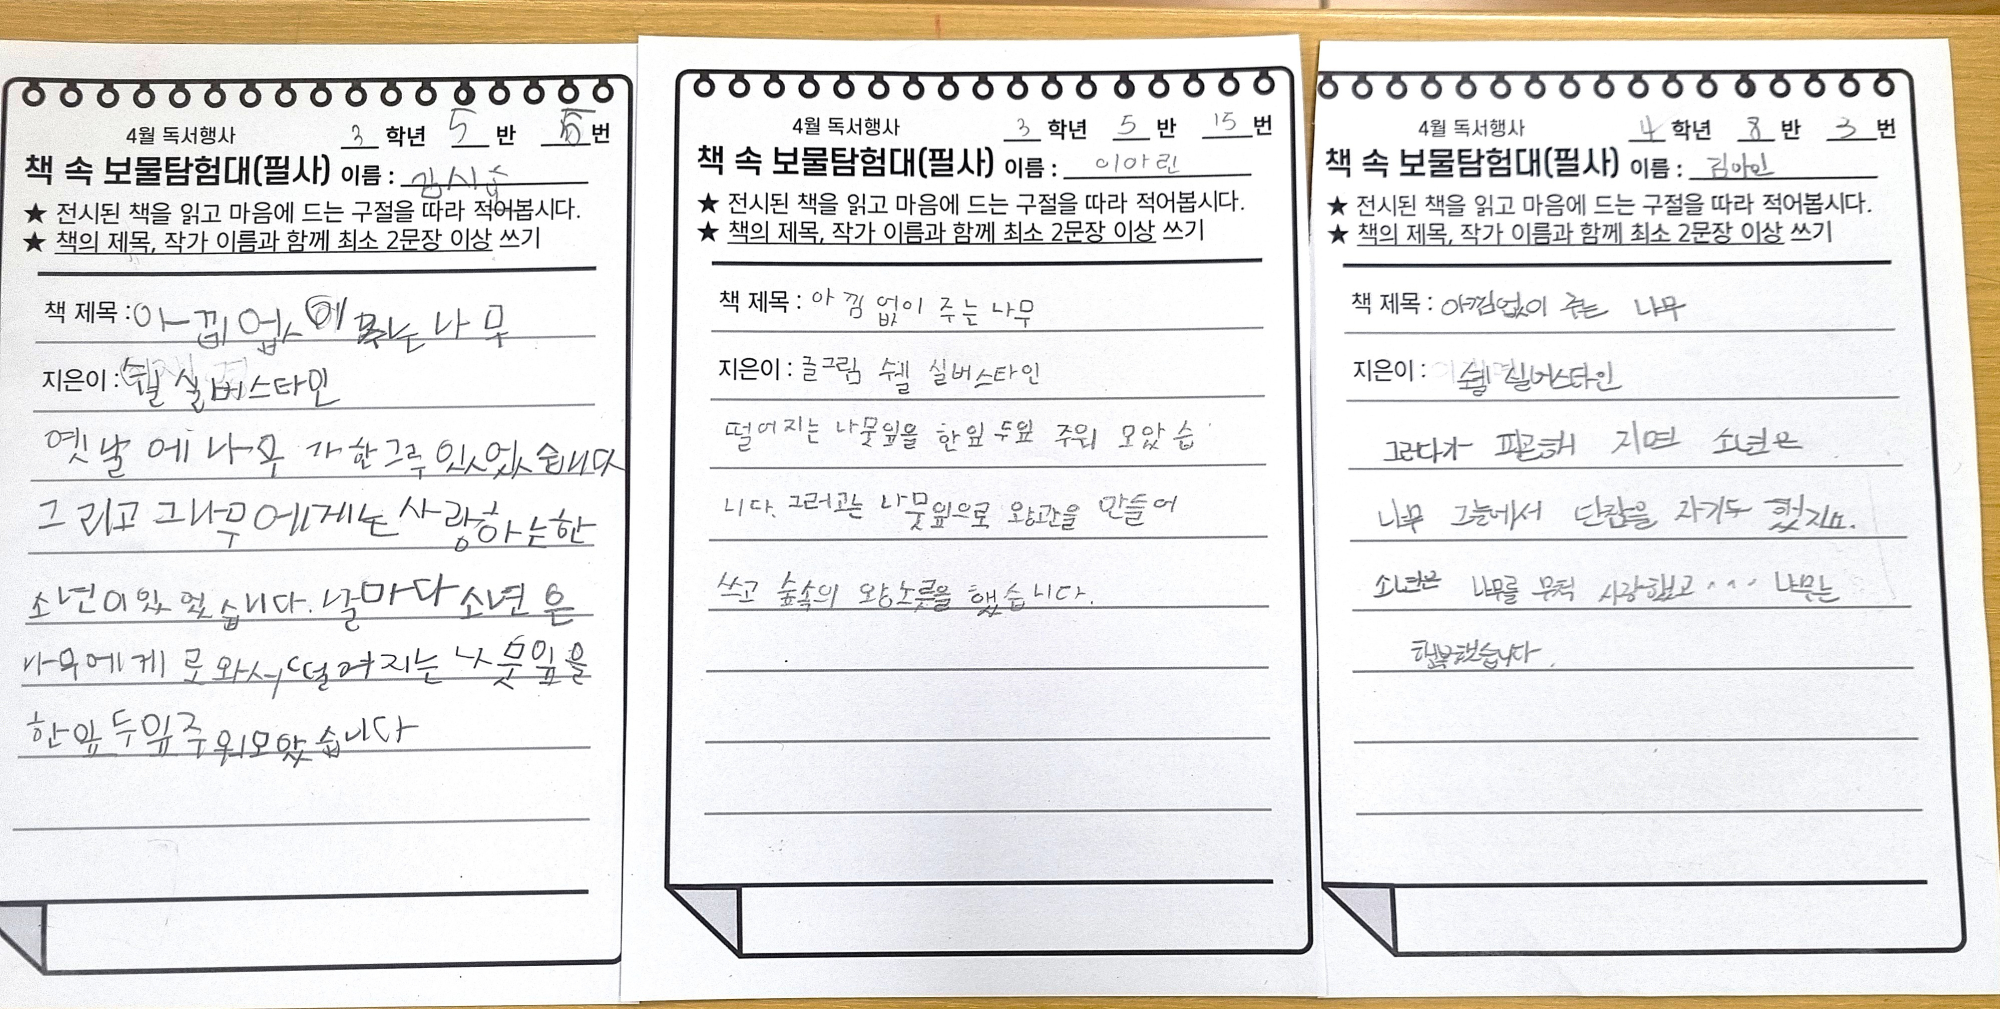 4월 독서행사
3 학년 5 반 5 번
책 속 보물탐험대(필사) 이름 : 김시
★ 전시된 책을 읽고 마음에 드는 구절을 따라 적어봅시다.
★ 책의 제목, 작가 이름과 함께 최소 2문장 이상 쓰기
책 제목 : 아낌없이 주는 나무
지은이 : 쉘 실버스타인
옛날에 나무 가 한그루 있었습니다
그리고 그나무에게는 사랑하는 한
소년이 있었습니다. 날마다 소년은
나무에게 로 와서 떨어지는 나뭇잎을
한잎 두잎 주워모았습니다
4월 독서행사
3 학년 5 반 15 번
책 속 보물탐험대(필사) 이름 : 이아린
★ 전시된 책을 읽고 마음에 드는 구절을 따라 적어봅시다.
★ 책의 제목, 작가 이름과 함께 최소 2문장 이상 쓰기
책 제목 : 아낌없이 주는 나무
지은이 : 글그림 쉘 실버스타인
떨어지는 나뭇잎을 한잎 두잎 주워 모았습
니다. 그러고는 나뭇잎으로 왕관을 만들어
쓰고 숲속의 왕노릇을 했습니다.
4월 독서행사
4 학년 8 반 3 번
책 속 보물탐험대(필사) 이름 : 김아인
★ 전시된 책을 읽고 마음에 드는 구절을 따라 적어봅시다.
★ 책의 제목, 작가 이름과 함께 최소 2문장 이상 쓰기
책 제목 : 아낌없이 주는 나무
지은이 : 쉘 실버스타인
그러다가 피곤해 지면 소년은
나무 그늘에서 단잠을 자기도 했지요.
소년은 나무를 무척 사랑했고... 나무는
행복했습니다.